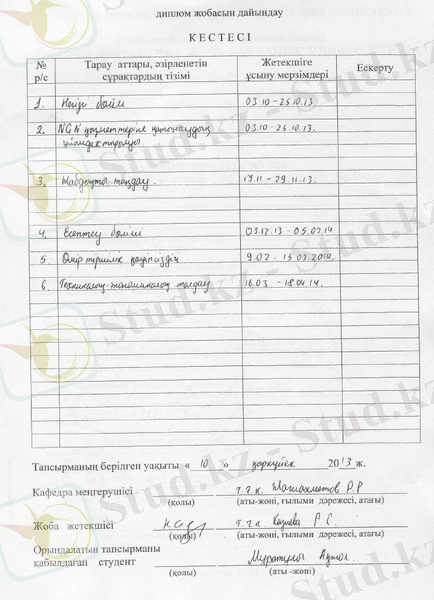 диплом жобасын дайындау
КЕСТЕСІ
№ р/с
Тарау аттары, әзірленетін сұрақтардың тізімі
Жетекшіге ұсыну мерзімдері
Ескерту
1. Негізгі бөлім 03.10 - 25.10.13
2. NGN қызметтеріне 03.10 - 25.10.13.
3. Жабдықты таңдау. - 29.11.13.
4. Есептеу бөлімі 03.12.13 - 05.02.14
5 Өмір тіршілік қауіпсіздігі 9.02 - 15.03.2014.
6. Техникалық-экономикалық талдау 16.03 - 18.04.14.
Тапсырманың берілген уақыты « 10 » қыркүйек 2013 ж.
Кафедра меңгерушісі т.ғ.к. Р.Р
(қолы) (аты-жөні, ғылыми дәрежесі, атағы)
Жоба жетекшісі т.ғ.к. Г.С.
(қолы) (аты-жөні, ғылыми дәрежесі, атағы)
Орындалатын тапсырманы
қабылдаған студент
(қолы) (аты -жөні)
Stud.kz - Stud.kz